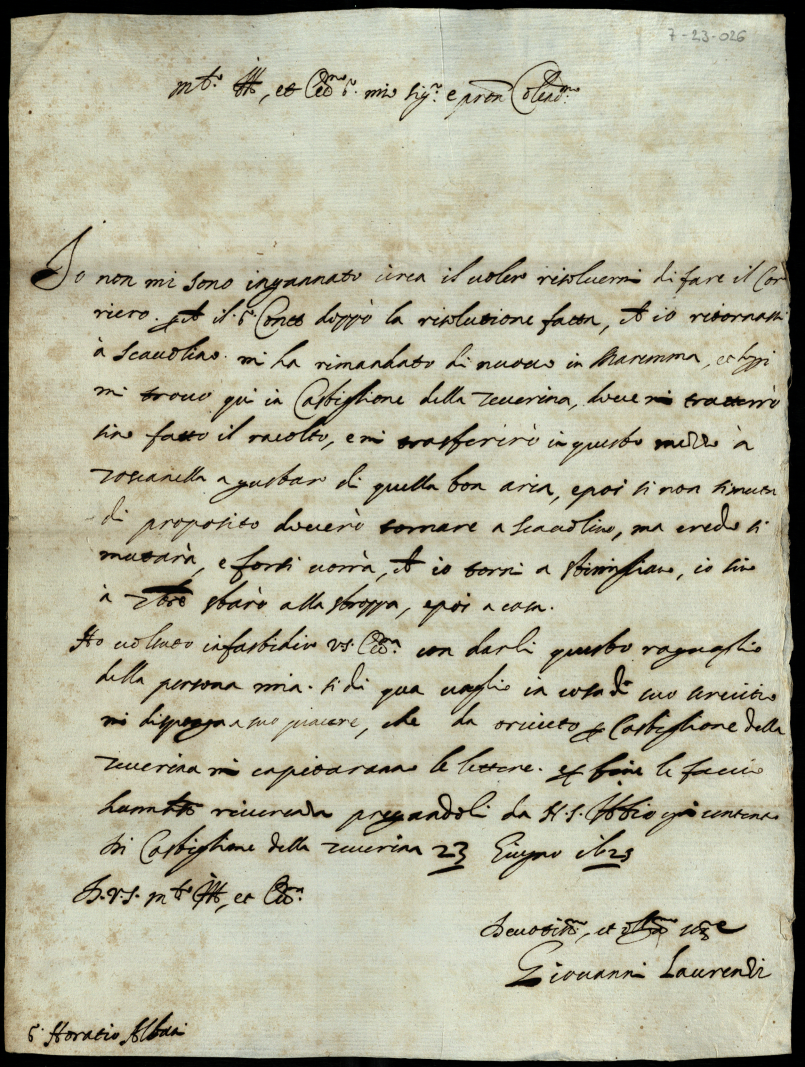 7-23-026
m.to Ill. et Ecc.mo S.r mio sig.r e pron Colend.mo
Io non mi sono ingannato circa il voler risolvermi di fare il Cor
riero. il S.r Conte doppò la risolutione fatta, ch'io ritornassi
à Scavolino. mi ha rimandato di nuovo in Maremma, et hoggi
mi trovo qui in Castiglione della Teverina, dove mi tratterrò
sino fatto il racolto, e mi trasferirò in questo mezzo à
Toscanella a gustar di quella bon aria, e poi si non si muta
di proposito doverò tornare a Scavolino, ma credo si
mutarà, e forsi vorrà, ch'io torni a Stimigliano, io sino
à 7bre starò alla stroppa, e poi a casa.
Ho voluto infastidir V.S. Ecc.ma con darli questo raguaglio
della persona mia. si di qua vaglio in cosa di suo servitio
mi disponga a suo piacere, che da orvieto per Castiglione della
Teverina mi capitaranno le lettere. et per fine le faccio
humil riverenza pregandoli da N.S. ogni contento
Di Castiglione della Teverina 23 Giugno 1623
D.V.S. m.to Ill. et Ecc.ma
Devotiss.mo, et ser.re
Giovanni Laurenzi
S.r Horatio Albani